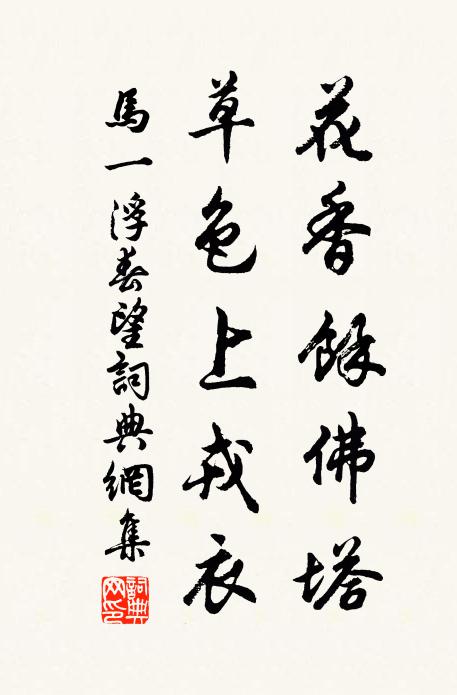 花香餘佛塔
草色上戎衣
馬一浮春望詞典網集
詞典網印